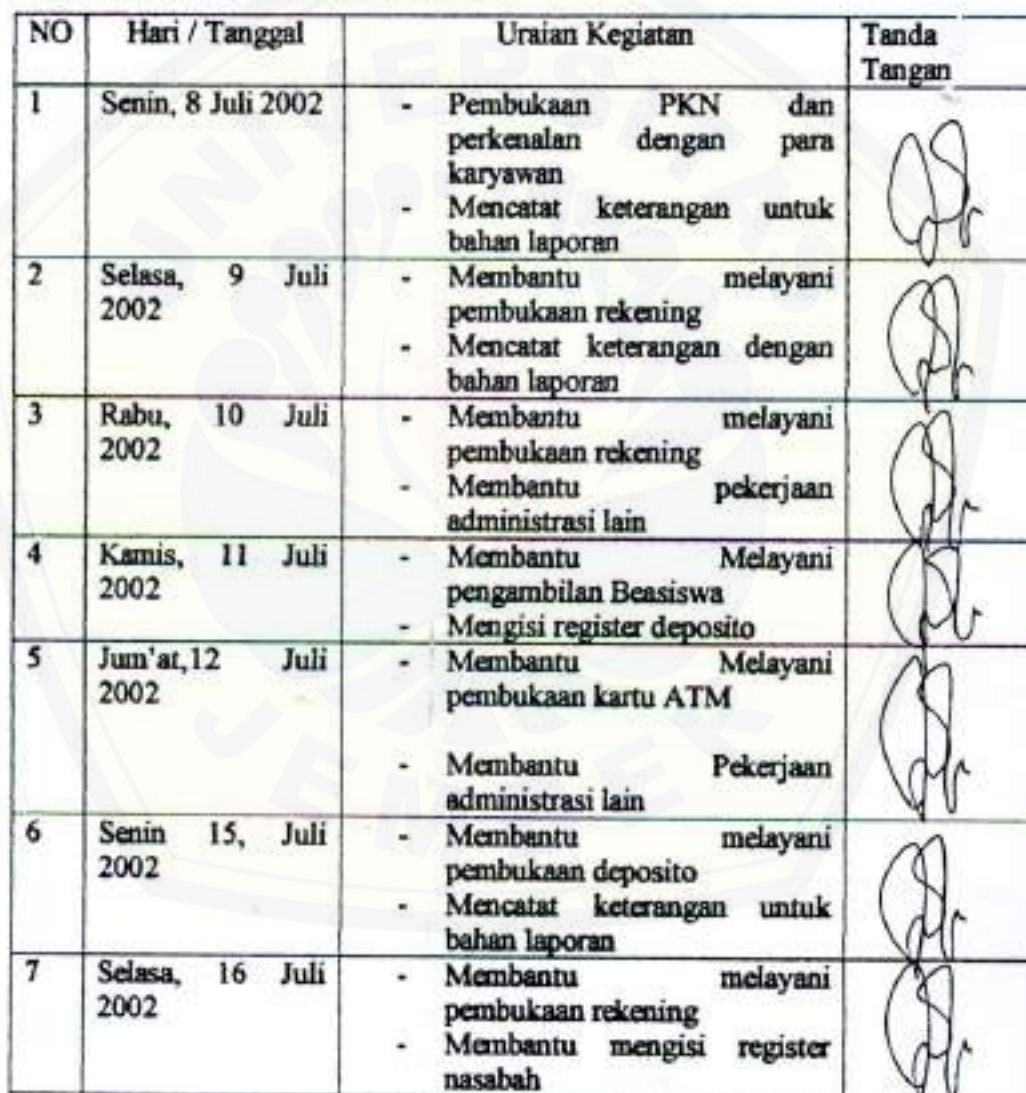 NO Hari / Tanggal Uraian Kegiatan Tanda
Tangan
1 Senin, 8 Juli 2002 - Pembukaan PKN dan
perkenalan dengan para
karyawan
- Mencatat keterangan untuk
bahan laporan
2 Selasa, 9 Juli - Membantu melayani
2002 pembukaan rekening
- Mencatat keterangan dengan
bahan laporan
3 Rabu, 10 Juli - Membantu melayani
2002 pembukaan rekening
- Membantu pekerjaan
administrasi lain
4 Kamis, 11 Juli - Membantu Melayani
2002 pengambilan Beasiswa
- Mengisi register deposito
5 Jum'at,12 Juli - Membantu Melayani
2002 pembukaan kartu ATM
- Membantu Pekerjaan
administrasi lain
6 Senin 15, Juli - Membantu melayani
2002 pembukaan deposito
- Mencatat keterangan untuk
bahan laporan
7 Selasa, 16 Juli - Membantu melayani
2002 pembukaan rekening
- Membantu mengisi register
nasabah
UNIVERSITAS
JEMBER